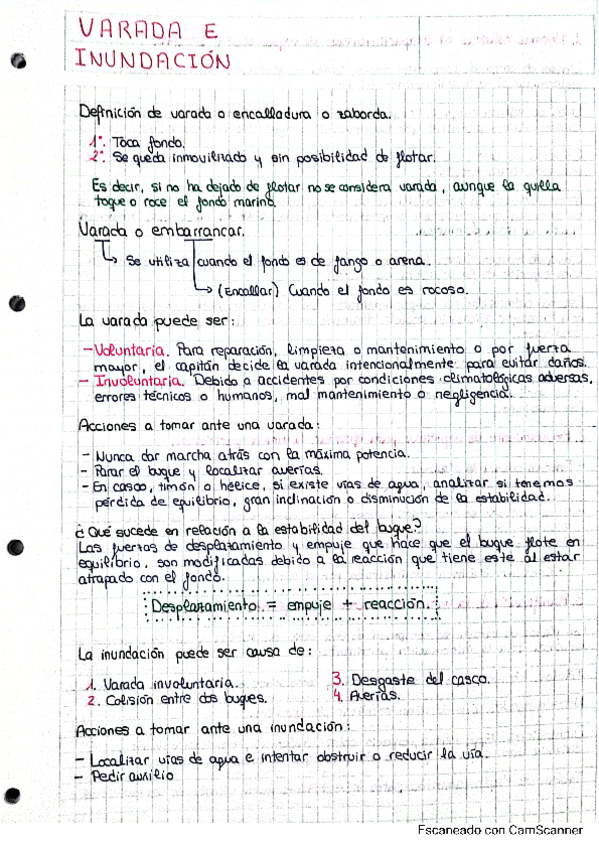 VARADA E
INUNDACIÓN
Definición de varada o encalladura o zaborda.
1º. Toca fondo.
2º. Se queda inmovilizado y sin posibilidad de flotar.
Es decir, si no ha dejado de flotar no se considera varada, aunque la quilla
toque o roce el fondo marino.
Varada o embarrancar.
Se utiliza cuando el fondo es de fango o arena.
(Encallar) Cuando el fondo es rocoso.
La varada puede ser:
- Voluntaria. Para reparación, limpieza o mantenimiento o por fuerza
mayor, el capitán decide la varada intencionalmente para evitar daños.
- Involuntaria. Debido a accidentes por condiciones climatológicas adversas,
errores técnicos o humanos, mal mantenimiento o negligencia.
Acciones a tomar ante una varada:
- Nunca dar marcha atrás con la máxima potencia.
- Parar el buque y localizar averías.
- En casco, timón o hélice, si existe vías de agua, analizar si tenemos
pérdida de equilibrio, gran inclinación o disminución de la estabilidad.
¿Qué sucede en relación a la estabilidad del buque?
Las fuerzas de desplazamiento y empuje que hace que el buque flote en
equilibrio, son modificadas debido a la reacción que tiene este al estar
atrapado con el fondo.
Desplazamiento = empuje + reacción.
La inundación puede ser causa de:
1. Varada involuntaria.
2. Colisión entre dos buques.
3. Desgaste del casco.
4. Averías.
Acciones a tomar ante una inundación:
- Localizar vías de agua e intentar obstruir o reducir la vía.
- Pedir auxilio
Escaneado con CamScanner